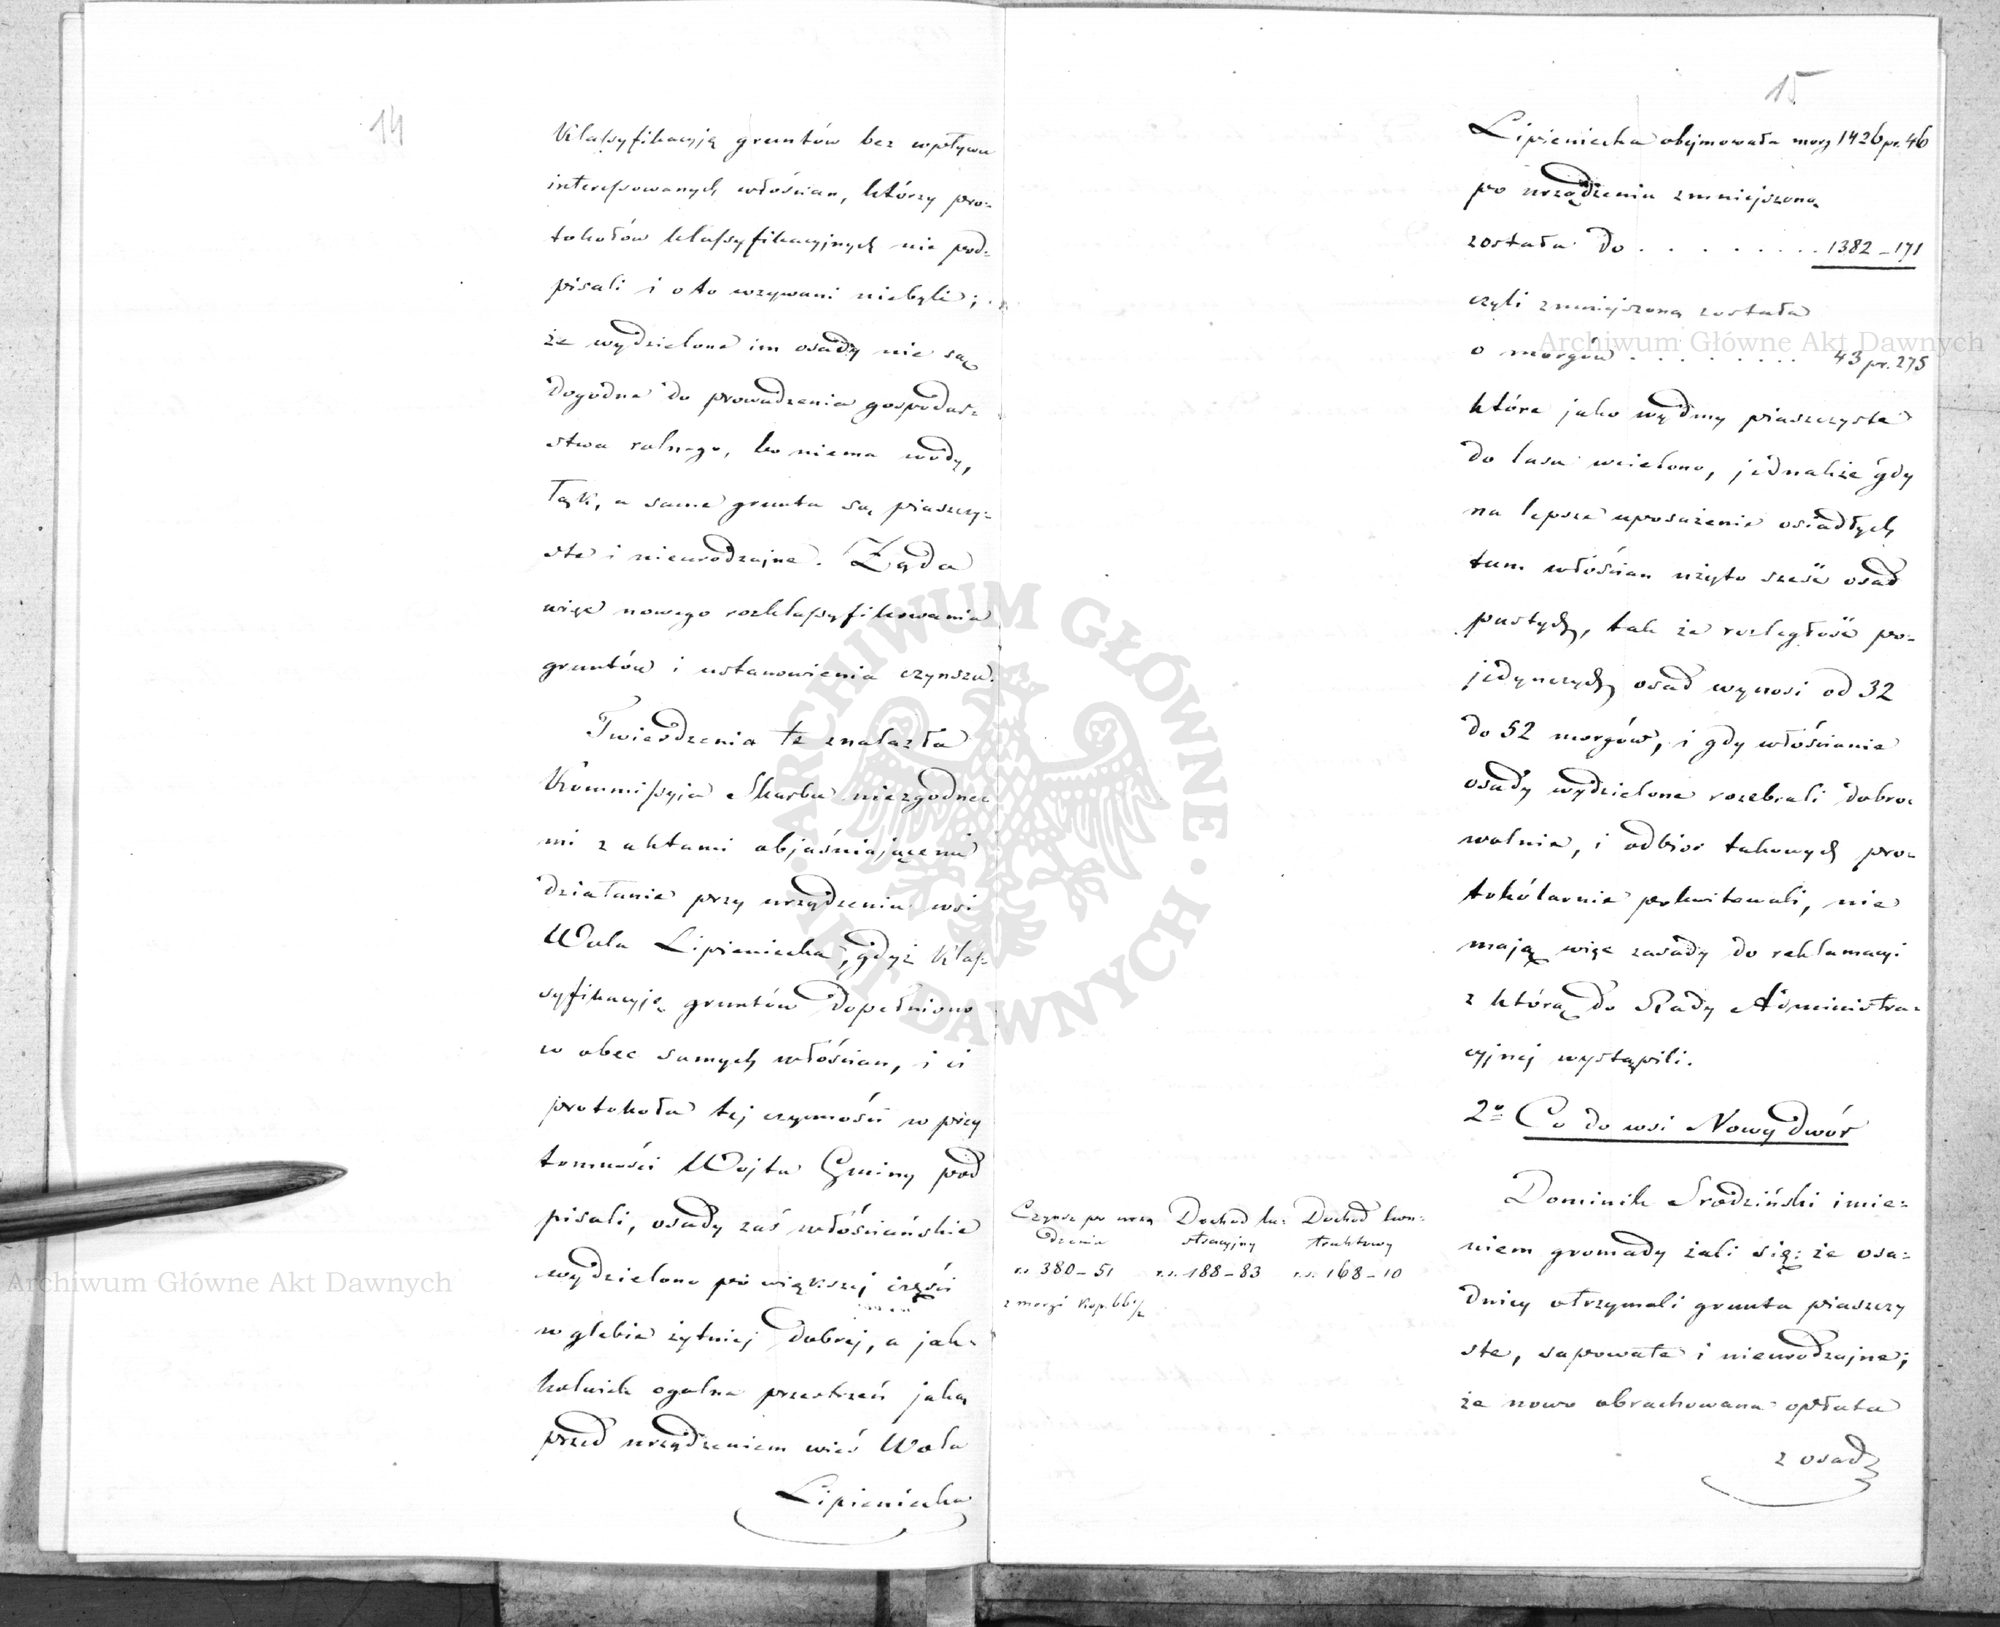 14
Klassyfikacyją gruntów bez wpływu
interessowanych włościan, którzy pro-
tokołów klassyfikacyjnych nie pod-
pisali i oto wzywani niebyli;
że wydzielone im osady nie są
dogodne do prowadzenia gospodar-
stwa rolnego, bo niema wody,
łąk, a same grunta są piaszczy-
ste i nieurodzajne. Żąda
więc nowego rozklassyfikowania
gruntów i ustanowienia czynszu.
Twierdzenia te znalazła
Kommissyja Skarbu niezgodne-
mi z aktami objaśniającemi
działanie przy urządzeniu wsi
Wola Lipieniecka, gdyż Klas-
syfikacyję gruntów dopełniono
w obec samych włościan, i ci
protokuła tej czynności w przy
tomności Wójta Gminy pod
pisali, osady zaś włościańskie
wydzielono po większej części
w glebie żytniej dobrej, a jak-
kolwiek ogólna przestrzeń jaką
przed urządzeniem wieś Wola
Lipieniecka
15
Lipieniecka obejmowała morg 1426 pr. 46
po urządzeniu zmniejszoną
została do . . . . . . . . . 1382 - 171
czyli zmniejszoną została
o morgów . . . . . . . . . 43 pr. 175
które jako wydmy piaszczyste
do lasu wcielono, jednakże gdy
na lepsze uposażenie osiadłych
tam włościan użyto sześć osad
pustych, tak że rozległość po-
jedynczych osad wynosi od 32
do 52 morgów, i gdy włościanie
osady wydzielone rozebrali dobro-
wolnie, i odbiór takowych pro-
tokólarnie pokwitowali, nie
mają więc zasady do reklamacyi
z którą do Rady Administra-
cyjnej wystąpili.
2o Co do wsi Nowy dwór
Dominik Srodziński imie-
niem gromady żali się: że osa-
dnicy otrzymali grunta piaszczy
ste, sapowate i nieurodzajne;
że nowo obrachowana opłata
z osad
Czynsz po urzą Dochod lu- Dochod kon-
dzeniu stracyjny traktowy
r.s. 380 - 51 r.s. 188 - 83 r.s. 168 - 10
z morgi Kop. 66 1/2
Archiwum Główne Akt Dawnych
Archiwum Główne Akt Dawnych
ARCHIWUM GŁÓWNE · AKT DAWNYCH ·